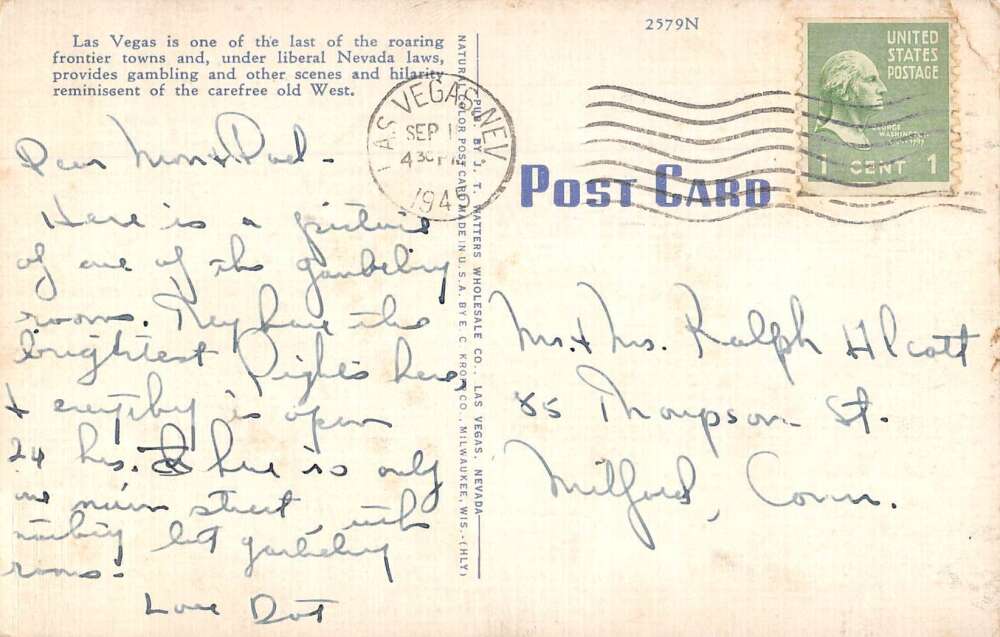 Las Vegas is one of the last of the roaring
frontier towns and, under liberal Nevada laws,
provides gambling and other scenes and hilarity
reminissent of the carefree old West.
2579N
UNITED
STATES
POSTAGE
GEORGE
WASHINGTON
1 CENT 1
LAS VEGAS, NEV.
SEP 1
4 30 PM
194
POST CARD
PUB. BY J. T. WATTERS WHOLESALE CO., LAS VEGAS, NEVADA
NATURAL COLOR POST CARD MADE IN U.S.A. BY E. C. KROPP CO., MILWAUKEE, WIS.-(HLY)
Dear Mom & Dad -
Here is a picture
of one of the gambeling
rooms. They have the
brightest lights here
& everything is open
24 hrs. There is only
one main street, with
nothing but gambeling
rooms.
Love Dot
Mr. & Mrs. Ralph Alcott
85 Thompson St.
Milford, Conn.